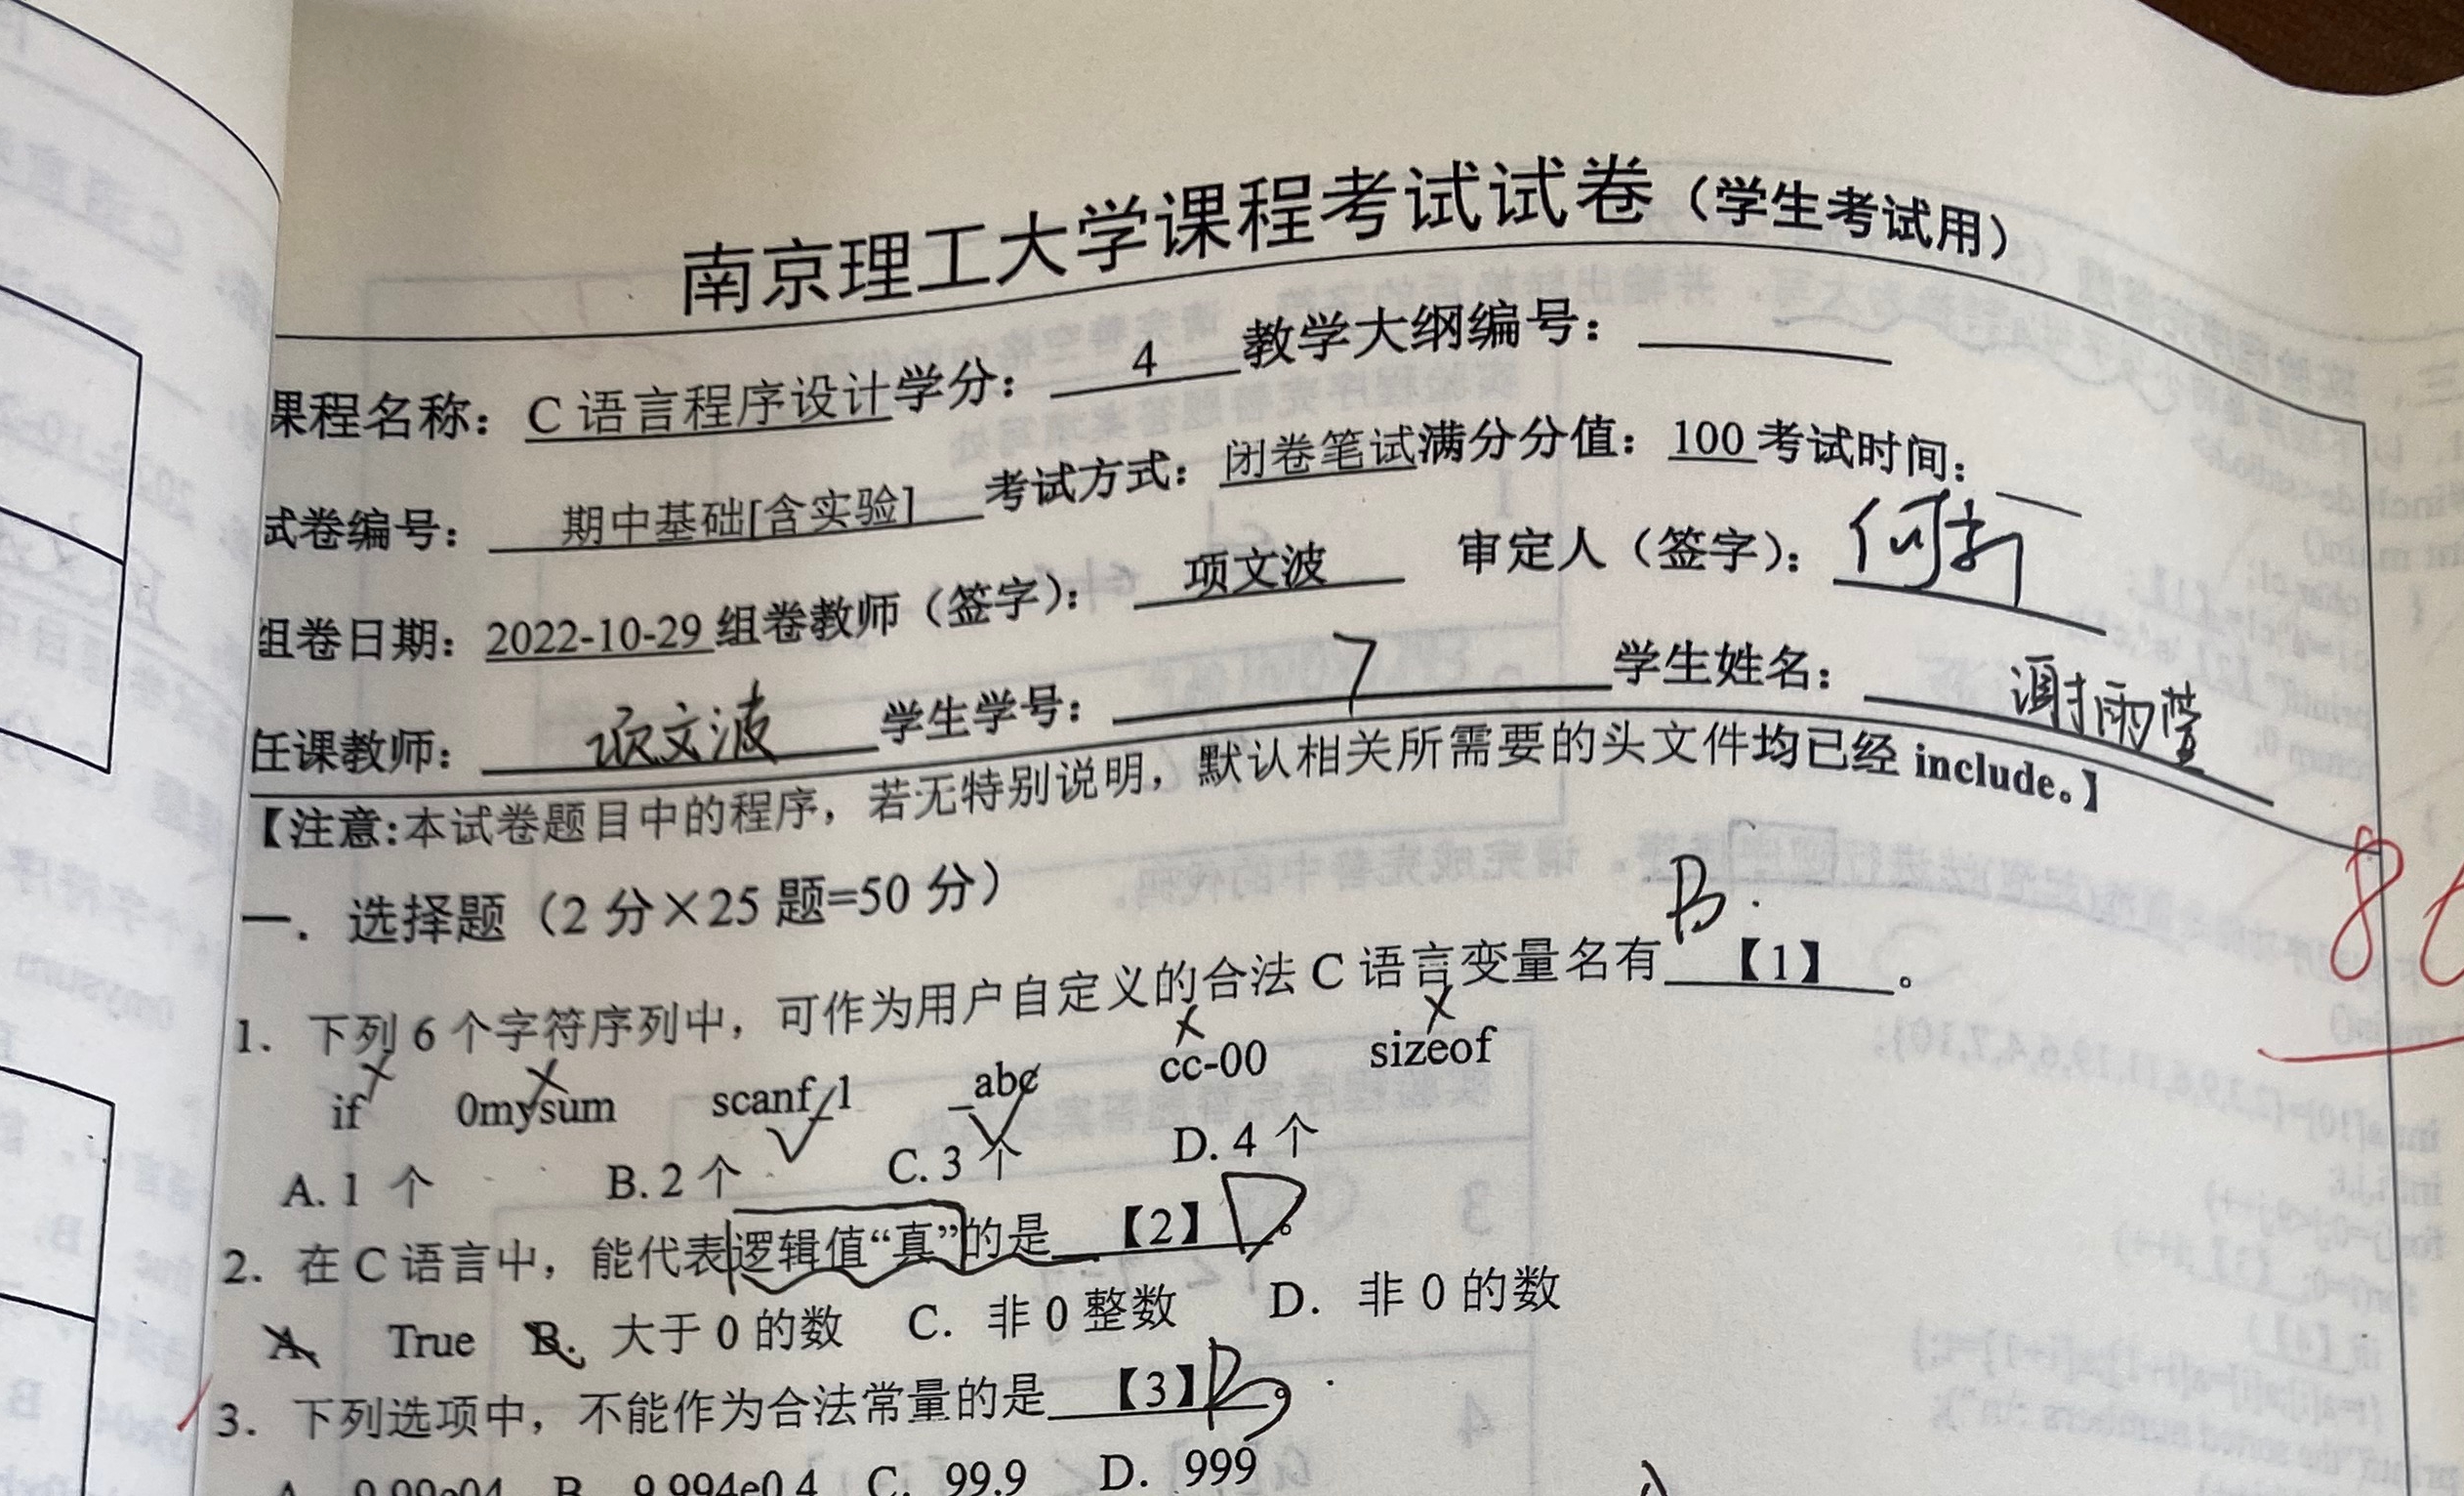 南京理工大学课程考试试卷（学生考试用）
课程名称：C 语言程序设计学分：4 教学大纲编号：
试卷编号：期中基础[含实验] 考试方式：闭卷笔试满分分值：100 考试时间：
组卷日期：2022-10-29 组卷教师（签字）：项文波 审定人（签字）：何新
任课教师：项文波 学生学号：7 学生姓名：谢雨萱
【注意:本试卷题目中的程序，若无特别说明，默认相关所需要的头文件均已经 include。】
一．选择题（2 分×25 题=50 分）
1. 下列 6 个字符序列中，可作为用户自定义的合法 C 语言变量名有【1】B。
if 0mysum scanf_1 _abc cc-00 sizeof
A. 1 个 B. 2 个 C. 3 个 D. 4 个
2. 在 C 语言中，能代表逻辑值“真”的是【2】D。
A. True B. 大于 0 的数 C. 非 0 整数 D. 非 0 的数
3. 下列选项中，不能作为合法常量的是【3】B。
A. 9.99e04 B. 9.994e0.4 C. 99.9 D. 999